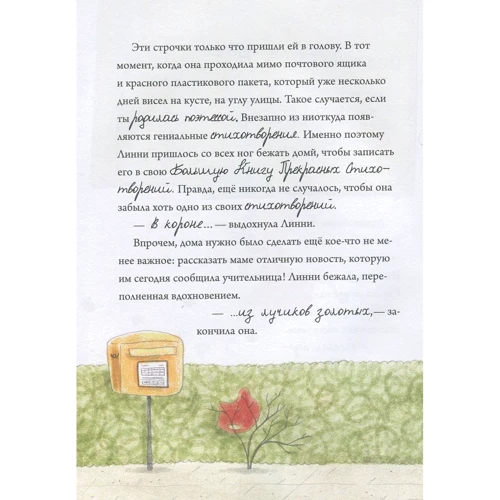 Эти строчки только что пришли ей в голову. В тот
момент, когда она проходила мимо почтового ящика
и красного пластикового пакета, который уже несколько
дней висел на кусте, на углу улицы. Такое случается, если
ты родилась поэтессой. Внезапно из ниоткуда появ-
ляются гениальные стихотворения. Именно поэтому
Линни пришлось со всех ног бежать домй, чтобы записать
его в свою Большую Книгу Прекрасных Стихо-
творений. Правда, ещё никогда не случалось, чтобы она
забыла хоть одно из своих стихотворений.
— В короне... — выдохнула Линни.
Впрочем, дома нужно было сделать ещё кое-что не ме-
нее важное: рассказать маме отличную новость, которую
им сегодня сообщила учительница! Линни бежала, пере-
полненная вдохновением.
— ...из лучиков золотых, — за-
кончила она.